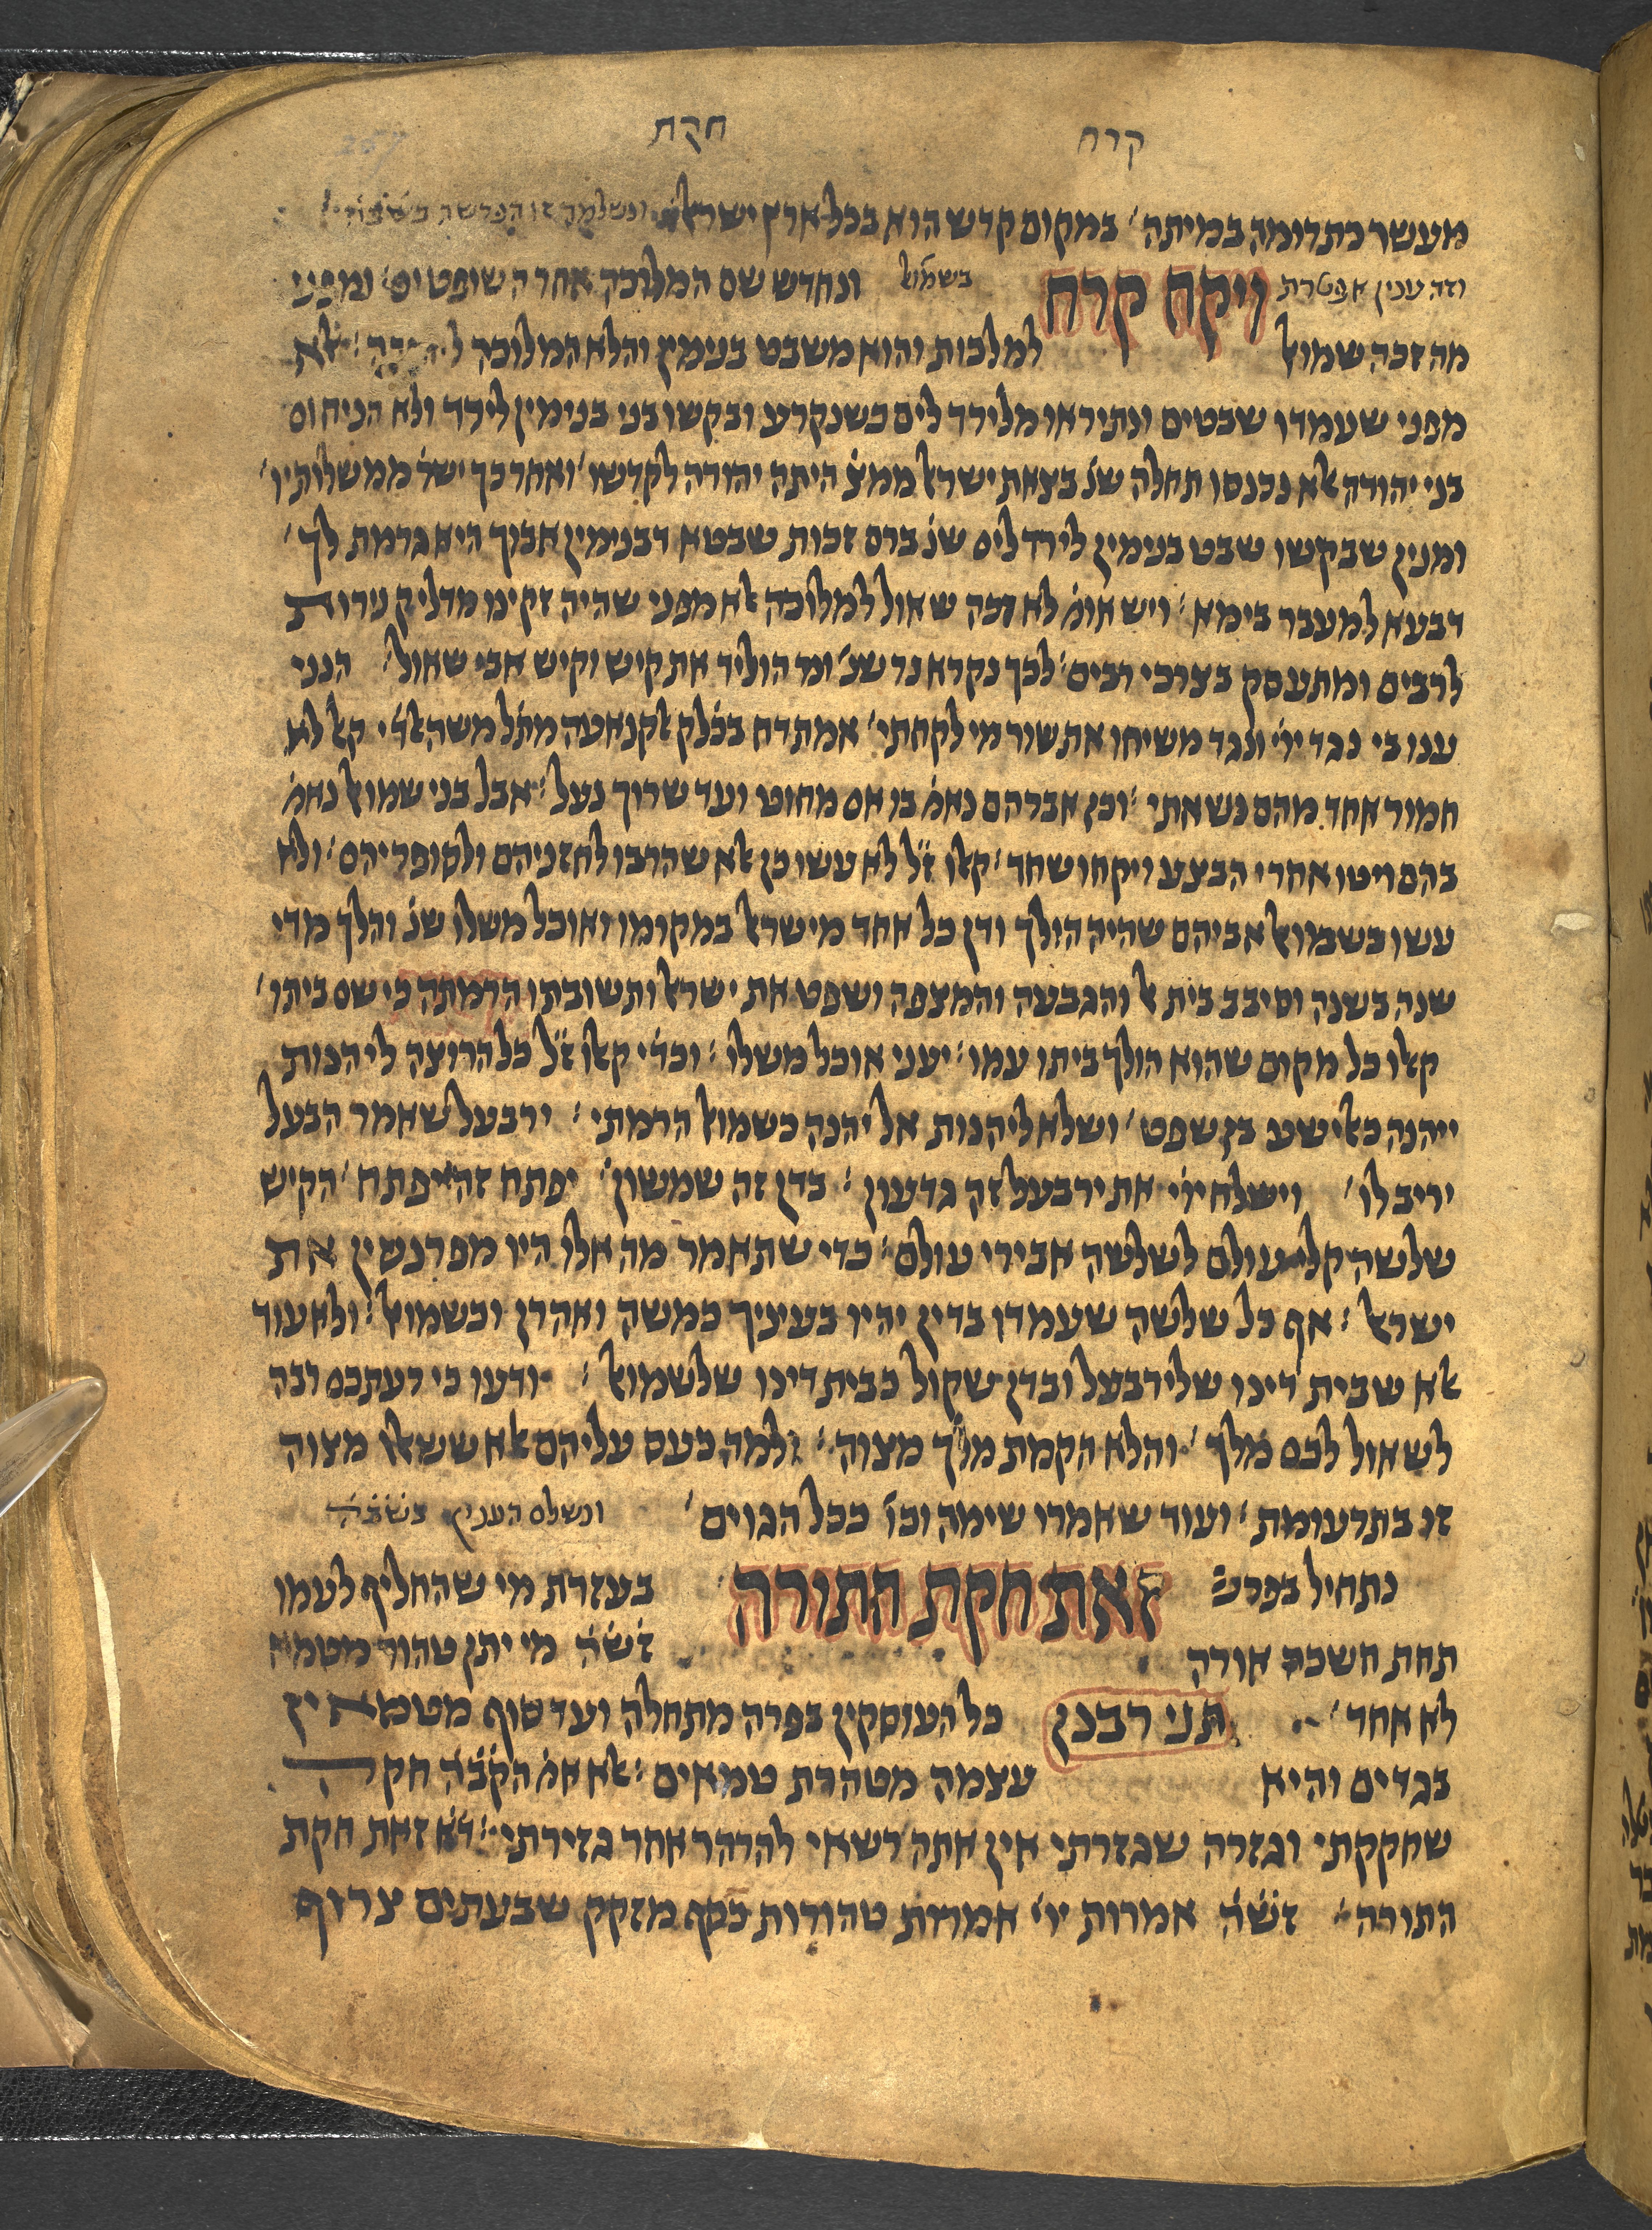 קרח חקת
מעשר כתרומה במיתה׳ במקום קדש הוא בכל ארץ ישראל׃ ונשלמה זו הפרשה
וזה ענין אפטרת ויקח קרח בשמואל ונחדש שם המלוכה אחר השופטים׳ ומפני
מה זכה שמואל למלכות והוא משבט בנימין והלא המלוכה אלא
מפני שעמדו שבטים ונתיראו מלירד לים כשנקרע ובקשו בני בנימין לירד ולא הניחום
בני יהודה אלא נכנסו תחלה שנ׳ בצאת ישראל ממצ׳ היתה יהודה לקדשו׳ ואחר כך ישר׳ ממשלותיו׳
ומנין שבקשו שבט בנימין לירד לים שנ׳ ברם זכות שבטא דבנימין אבוך היא גרמת לך׳
דבעא למעבר בימא׃ ויש אומ׳ לא זכה שאול למלוכה אלא מפני שהיה זקינו מדליק נירות
לרבים ומתעסק בצרכי רבים׃ לכך נקרא נר שנ׳ ונר הוליד את קיש וקיש אבי שאול׃ הנני
ענו בי נגד ייי ונגד משיחו את שור מי לקחתי׳ אמתדח בכ׳לק אלקנאעה מת׳ל משה אלד׳י קאל לא
חמור אחד מהם נשאתי׃ וכן אברהם נאמ׳ בו אם מחוט ועד שרוך נעל׃ אבל בני שמואל נאמ׳
בהם ויטו אחרי הבצע ויקחו שחד׳ קאלו ז״ל לא עשו כן אלא שהרבו לחזניהם ולסופריהם׳ ולא
עשו כשמואל אביהם שהיה הולך ודן כל אחד מישראל במקומו ואוכל משלו שנ׳ והלך מדי
שנה בשנה וסיבב בית אל והגבעה והמצפה ושפט את ישראל ותשובתו הרמתה כי שם ביתו׳
קאלו כל מקום שהוא הולך ביתו עמו׃ יעני אוכל משלו׃ וכד׳י קאלו ז״ל כל הרוצה ליהנות
ייהנה כאלישע בן שפט׳ ושלא ליהנות אל יהנה כשמואל הרמתי׃ ירבעל שאמר הבעל
יריב לו׳ וישלח ייי את ירבעל זה גדעון׃ בדן זה שמשון׳ יפתח זה יפתח׳ הקיש
שלשה קלי עולם לשלשה אבירי עולם׃ כדי שתאמר מה אלו היו מפרנסין את
ישראל׃ אף כל שלשה שעמדו בדין יהיו בעיניך כמשה ואהרן וכשמואל׃ ולא עוד
אלא שבית דינו של ירבעל ובדן שקול כבית דינו של שמואל׃ ודעו כי רעתכם רבה
לשאול לכם מלך׳ והלא הקמת מלך מצוה׃ ולמה כעס עליהם אלא ששאלו מצוה
זו בתרעומת׳ ועוד שאמרו שימה וכו׳ ככל הגוים׳ ונשלם הענין
נתחיל בפרש׳ זאת חקת התורה בעזרת מי שהחליף לעמו
תחת חשכה אורה ז׳ש׳ה׳ מי יתן טהור מטמא
לא אחד׳ תני רבנן כל העוסקין בפרה מתחלה ועד סוף מטמאין
בגדים והיא עצמה מטהרת טמאים׃ אלא אמ׳ הקב״ה חקה
שחקקתי וגזרה שגזרתי אין אתה רשאי להרהר אחר גזירתי׃ ד׳א׳ זאת חקת
התורה׳ ז׳ש׳ה׳ אמרות יי׳ אמרות טהורות כסף מזקק שבעתים צרוף